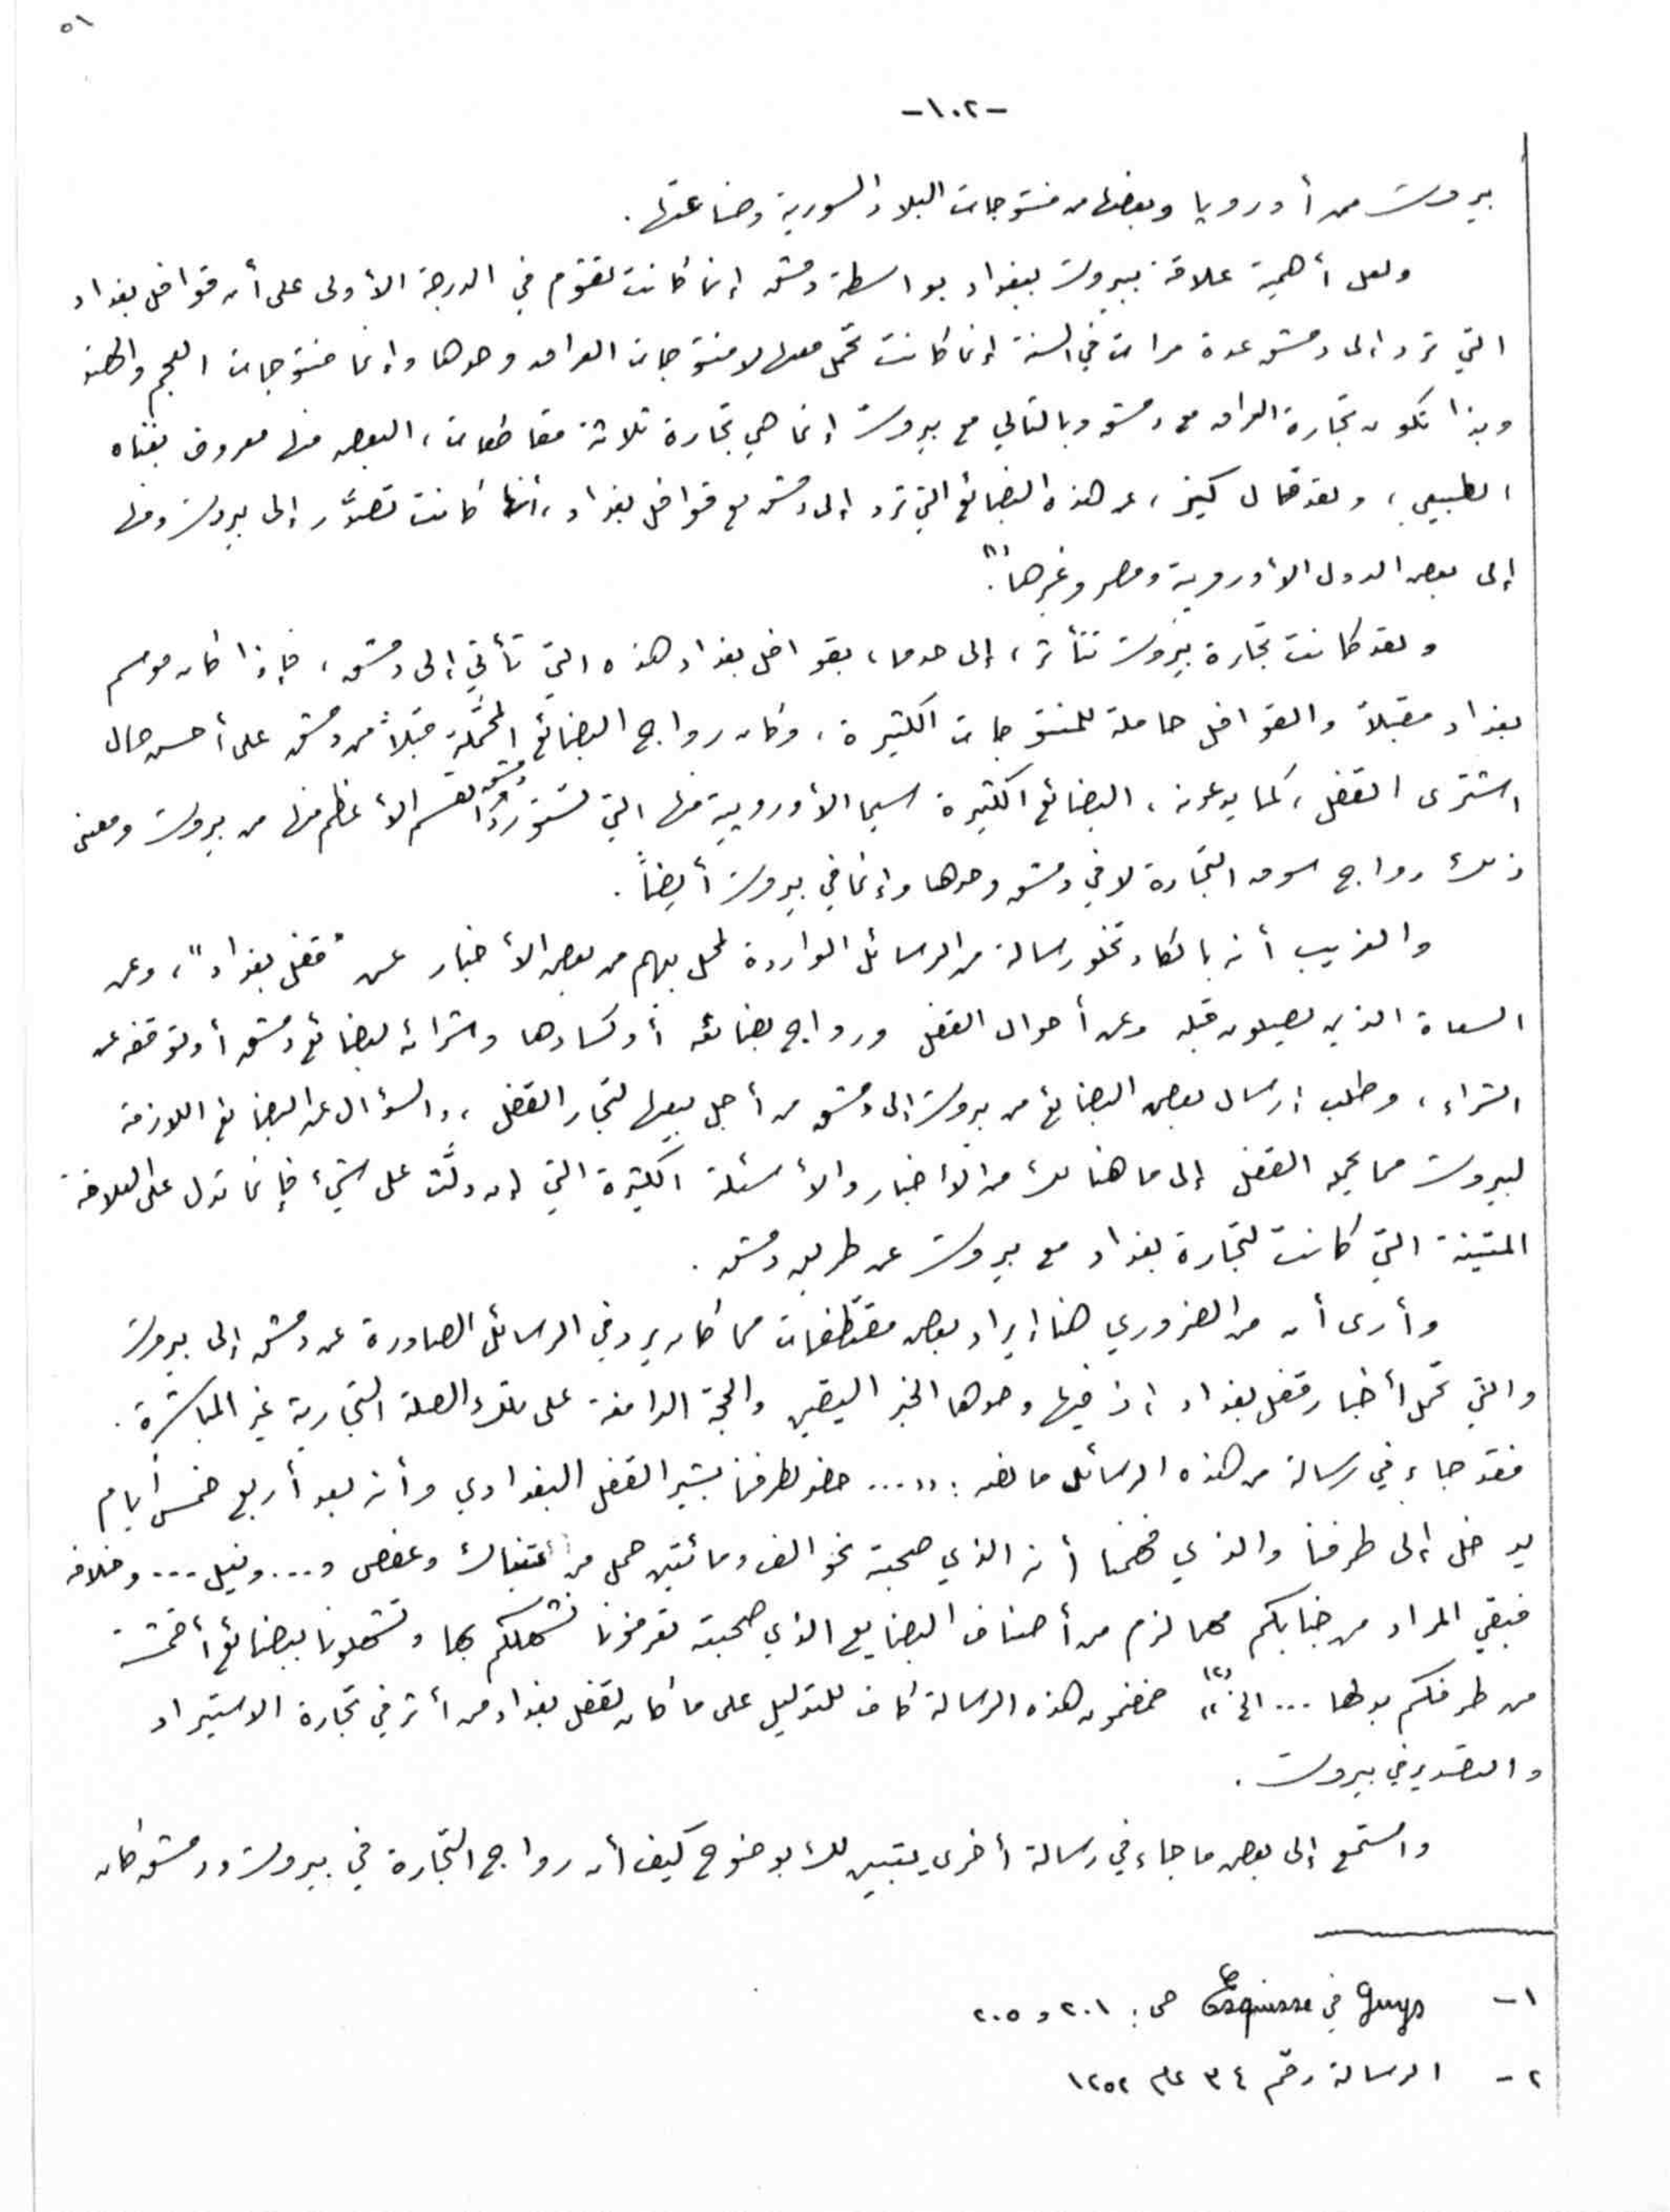 ٥١
-١٠٢-
بيروت من أوروبا وبعضها من منتوجات البلاد السورية وصناعتها .
ولعل أهمية علاقة بيروت ببغداد بواسطة دمشق إنما كانت تقوم في الدرجة الأولى على أن قوافل بغداد
التي ترد إلى دمشق عدة مرات في السنة إنما كانت تحمل معها لا منتوجات العراق وحدها وإنما منتوجات العجم والهند
وبذا تكون تجارة العراق مع دمشق وبالتالي مع بيروت إنما هي تجارة ثلاثة مقاطعات ، البعض منها معروف بغناه
الطبيعي ، ولقد قال كيز ، عن هذه البضائع التي ترد إلى دمشق مع قوافل بغداد ، أنها كانت تصدَّر إلى بيروت ومنها
إلى بعض الدول الأوروبية ومصر وغيرها (١) .
ولقد كانت تجارة بيروت تتأثر ، إلى حد ما ، بقوافل بغداد هذه التي تأتي إلى دمشق ، فإذا كان موسم
بغداد مقبلاً والقوافل حاملة للمنتوجات الكثيرة ، وكان رواج البضائع المحمَّلة قبلاً من دمشق على أحسن حال
اشترى القفل ، كما يدعونه ، البضائع الكثيرة سيما الأوروبية منها التي تستورد دمشق القسم الأعظم منها من بيروت ومعنى
ذلك رواج سوق التجارة لا في دمشق وحدها وإنما في بيروت أيضاً .
والغريب أنه بالكاد تخلو رسالة من الرسائل الواردة لمحل بيهم من بعض الأخبار عن "قفل بغداد" ، وعن
السعاة الذين يصلون قبله وعن أحوال القفل ورواج بضائعه أو كسادها وشرائه لبضائع دمشق أو توقفه عن
الشراء ، وطلب إرسال بعض البضائع من بيروت إلى دمشق من أجل بيعها لتجار القفل ، والسؤال عن البضائع اللازمة
لبيروت مما يحمله القفل إلى ما هنالك من الأخبار والأسئلة الكثيرة التي إن دلَّت على شيء فإنما تدل على العلاقة
المتينة التي كانت لتجارة بغداد مع بيروت عن طريق دمشق .
وأرى أن من الضروري هنا إيراد بعض مقتطفات مما كان يرد في الرسائل الصادرة عن دمشق إلى بيروت
والتي تحمل أخبار قفل بغداد إذ فيها وحدها الخبر اليقين والحجة الدامغة على تلك الصلة التجارية غير المباشرة .
فقد جاء في رسالة من هذه الرسائل ما نصه : "... حضر لطرفنا بشير القفل البغدادي وأنه بعد أربع خمس أيام
يدخل إلى طرفنا والذي فهمنا أنه الذي صحبته نحو الف ومائتين حمل من تنباك وعفص و... ونيل ... وخلافه
فبقي المراد من جنابكم مهما لزم من أصناف البضايع الذي صحبته تعرفونا نشهلكم بها وتشهلونا ببضائع أقمشة
من طرفكم بدلها ... الخ" (٢) فمضمون هذه الرسالة كاف للتدليل على ما كان لقفل بغداد من أثر في تجارة الاستيراد
والتصدير في بيروت .
واستمع إلى بعض ما جاء في رسالة أخرى يتبين لك بوضوح كيف أن رواج التجارة في بيروت ودمشق كان
١- Guys في Esquisse ص : ٢٠١ و ٢٠٥
٢- الرسالة رقم ٣٤ عام ١٢٥٢